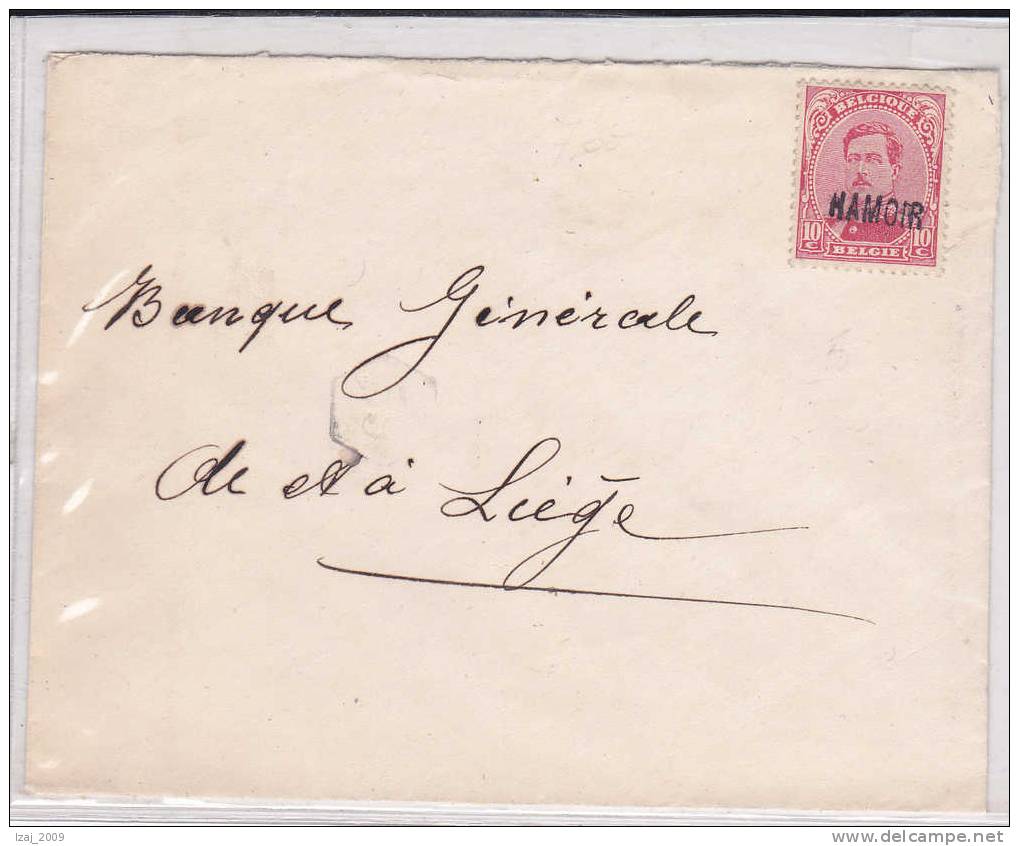 BELGIQUE
HAMOIR
10 C 10 C
BELGIE
Banque Générale
de et à Liége
Izaj_2009
www.delcampe.net